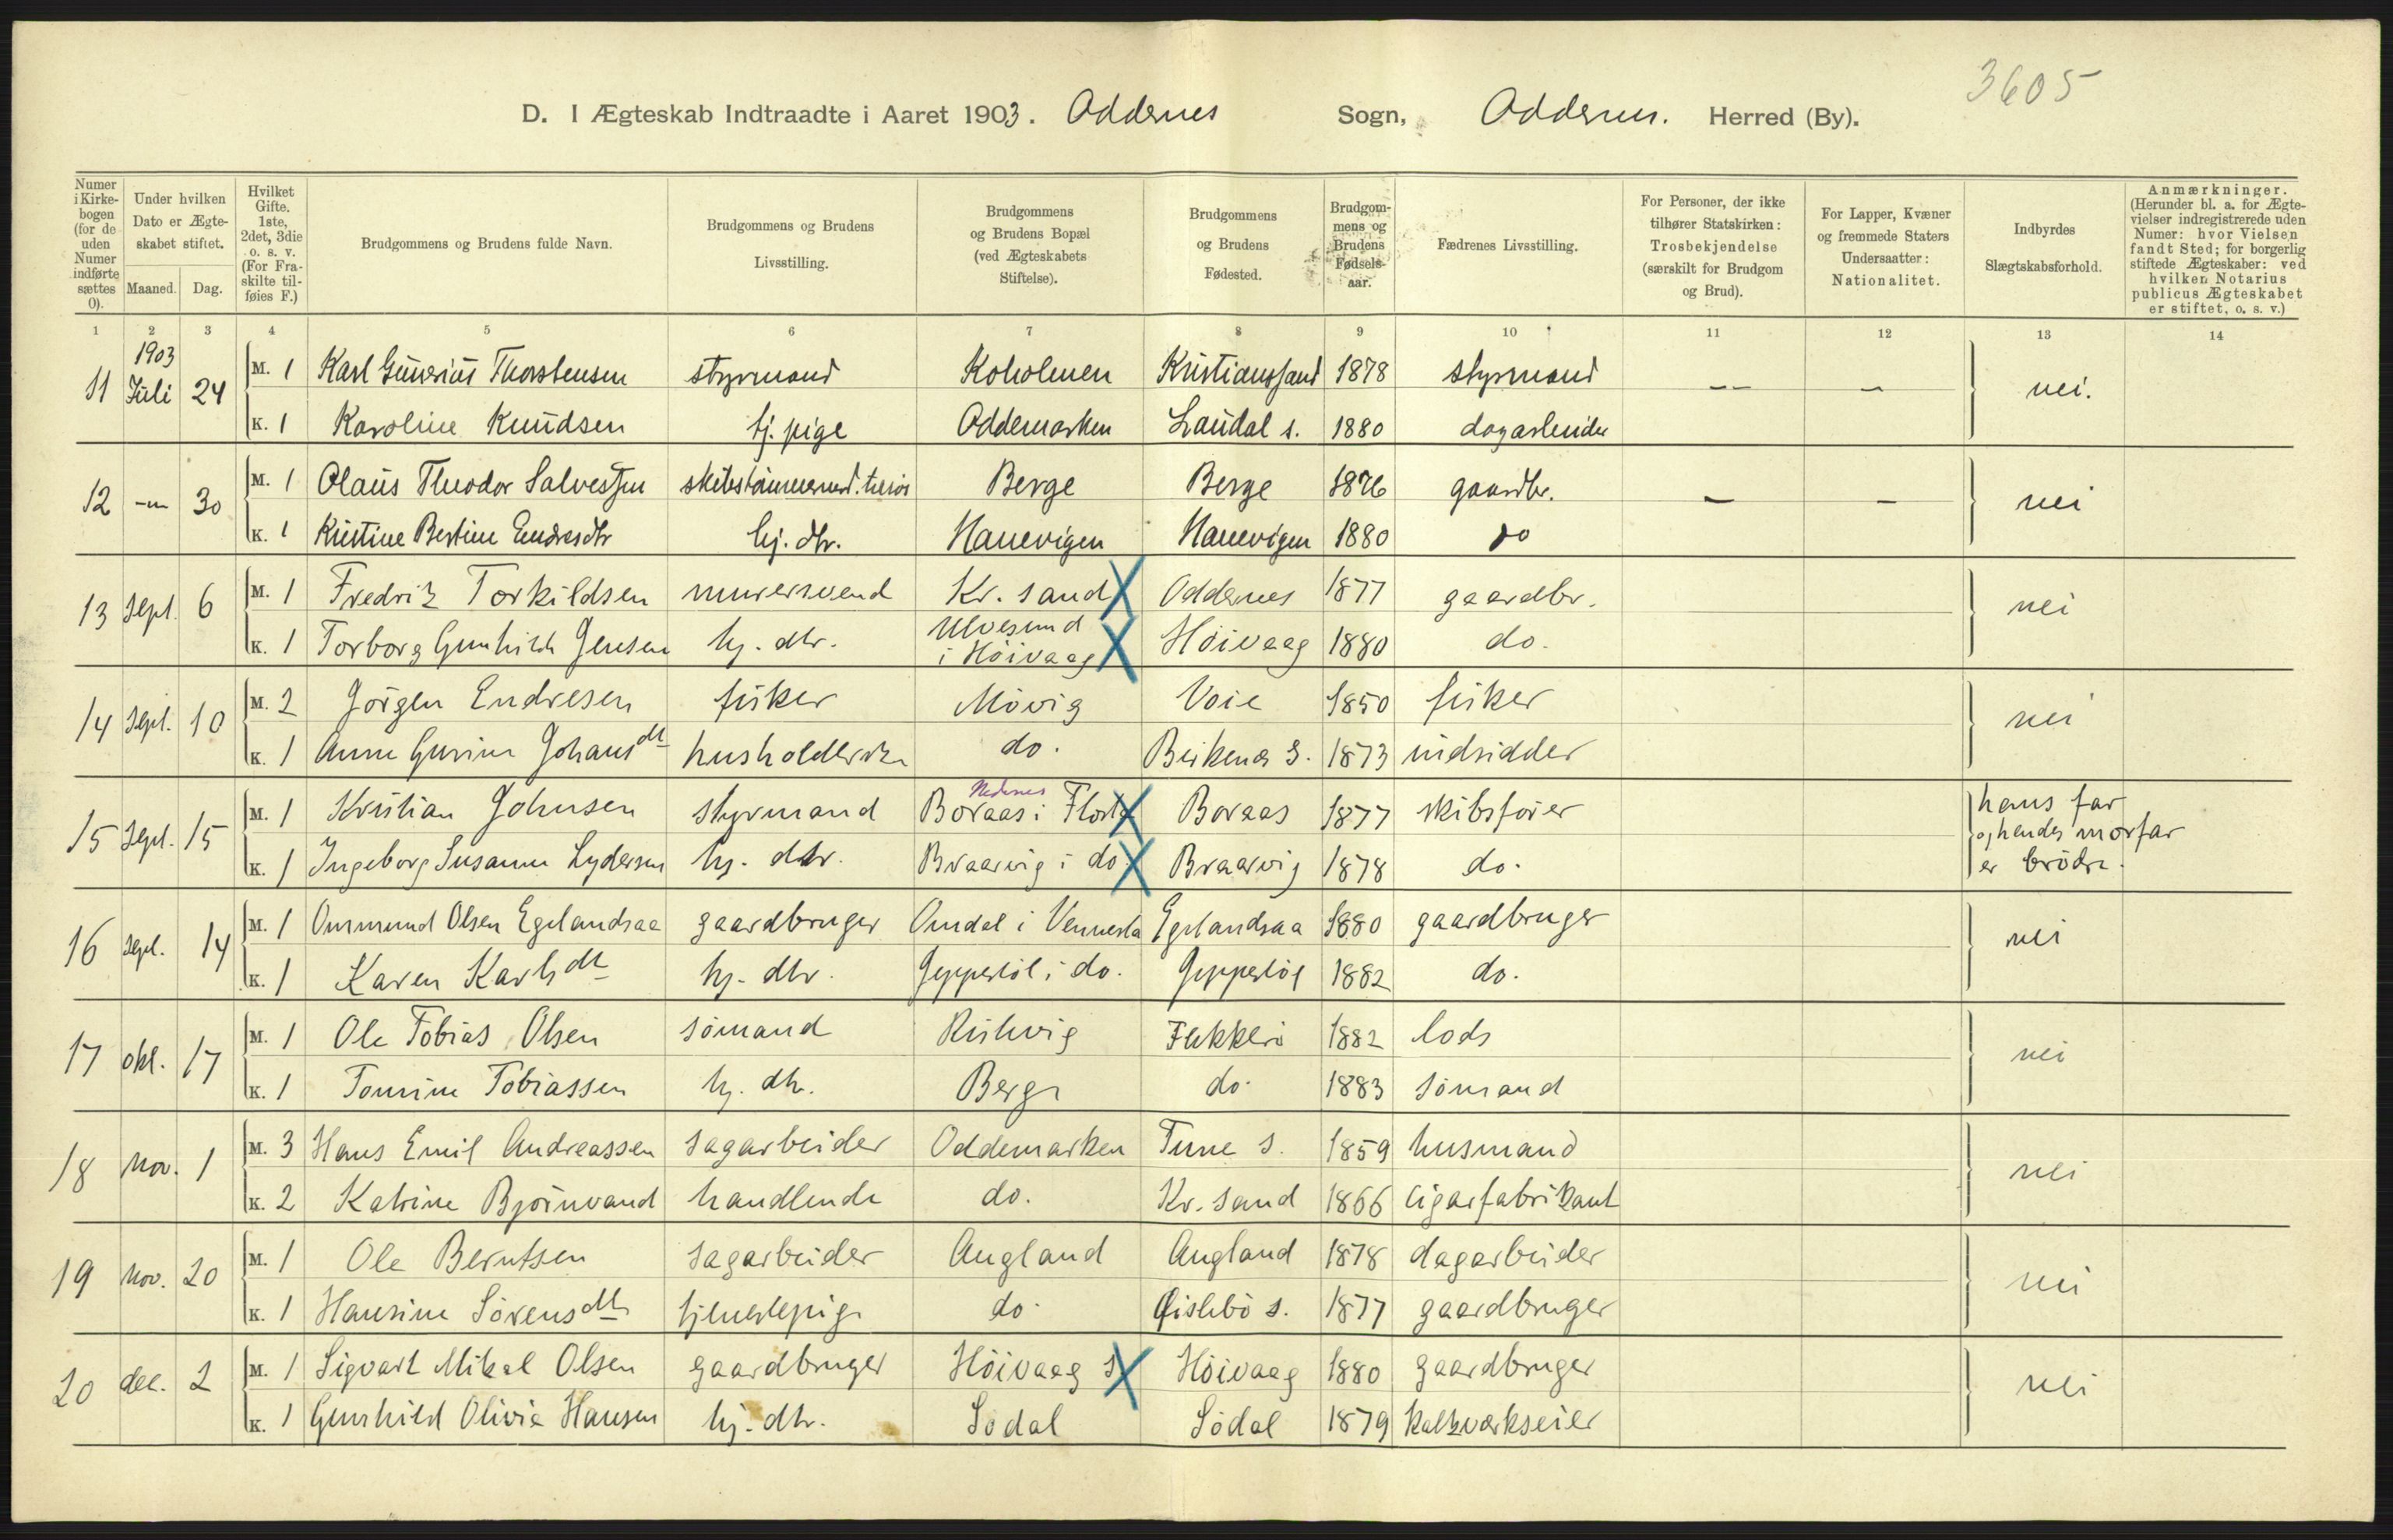 3605
D. I Ægteskab Indtraadte i Aaret 1903. Oddernes Sogn, Oddernes. Herred (By).
Numer i Kirkebogen (for de uden Numer indførte sættes 0).
Under hvilken Dato er Ægteskabet stiftet.
Maaned. Dag.
Hvilket Gifte, 1ste, 2det, 3die o. s. v. (For Fraskilte tilføies F.)
Brudgommens og Brudens fulde Navn.
Brudgommens og Brudens Livsstilling.
Brudgommens og Brudens Bopæl (ved Ægteskabets Stiftelse).
Brudgommens og Brudens Fødested.
Brudgommens og Brudens Fødselsaar.
Fædrenes Livsstilling.
For Personer, der ikke tilhører Statskirken: Trosbekjendelse (særskilt for Brudgom og Brud).
For Lapper, Kvæner og fremmede Staters Undersaatter: Nationalitet.
Indbyrdes Slægtskabsforhold.
Anmærkninger. (Herunder bl. a. for Ægtevielser indregistrerede uden Numer: hvor Vielsen fandt Sted; for borgerlig stiftede Ægteskaber: ved hvilken Notarius publicus Ægteskabet er stiftet, o. s. v.)
1 2 3 4 5 6 7 8 9 10 11 12 13 14
1903
11 Juli 24 M. 1 Karl Gunerius Thorstensen styrmand Koholmen Kristianssand 1878 styrmand -- - nei.
K. 1 Karoline Knudsen tj. pige Oddemarken Laudal s. 1880 dagarbeider
12 -"- 30 M. 1 Olaus Theodor Salvesen Berge Berge 1876 gaardbr. - - nei
K. 1 Kristine Bertine Endresdtr hj. dtr. Hanevigen Hanevigen 1880 do
13 Sept. 6 M. 1 Fredrik Torkildsen murersvend Kr. sand Oddernes 1877 gaardbr. nei
K. 1 Torborg Gunhild Jensen hj. dtr. Ulvesund i Höivaag Höivaag 1880 do.
14 Sept. 10 M. 2 Jörgen Endresen fisker Mövig Voie 1850 fisker nei
K. 1 Anne Gurine Johansdt husholderske do. Birkenes S. 1873 indsidder
15 Sept. 15 M. 1 Kristian Johnsen styrmand Boraas i Flosta Nedenes Boraas 1877 skibsförer hans far
og hendes morfar
K. 1 Ingeborg Susanne Lydersen hj. dtr. Braarvig i do. Braarvig 1878 do. er brödre.
16 Sept. 14 M. 1 Ommund Olsen Egelandsaa gaardbruger Omdal i Vennesla Egelandsaa 1880 gaardbruger nei
K. 1 Karen Karlsdt hj. dtr. Jeppestöl i do. Jeppestöl 1882 do.
17 okt. 17 M. 1 Ole Tobias Olsen sömand Flekkerö 1882 lods nei
K. 1 Tomine Tobiassen hj. dtr. Berge do. 1883 sömand
18 nov. 1 M. 3 Hans Emil Andreassen sagarbeider Oddemarken Tune s. 1859 husmand nei
K. 2 Katrine Bjørnvand handlende do. Kr. sand 1866 Cigarfabrikant
19 nov. 20 M. 1 Ole Berntsen sagarbeider Augland Augland 1878 dagarbeider nei
K. 1 Hansine Sörensdt tjenestepige do. Øislebö s. 1877 gaardbruger
20 dec. 2 M. 1 Sigvart Mikal Olsen gaardbruger Höivaag s Höivaag 1880 gaardbruger nei
K. 1 Gunhild Olivia Hansen hj. dtr. Södal Södal 1879 kalkværkseier